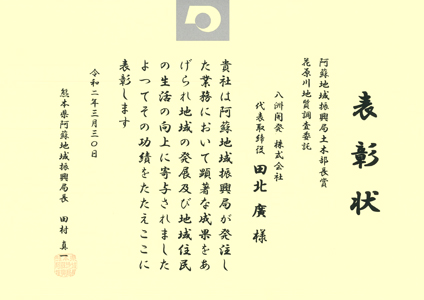 表彰状
阿蘇地域振興局土木部長賞
花原川地質調査委託
八洲開発 株式会社
代表取締役 田北 廣 様
貴社は阿蘇地域振興局が発注し
た業務において顕著な成果をあ
げられ地域の発展及び地域住民
の生活の向上に寄与されました
よってその功績をたたえここに
表彰します
令和二年三月三〇日
熊本県阿蘇地域振興局長 田村 真一